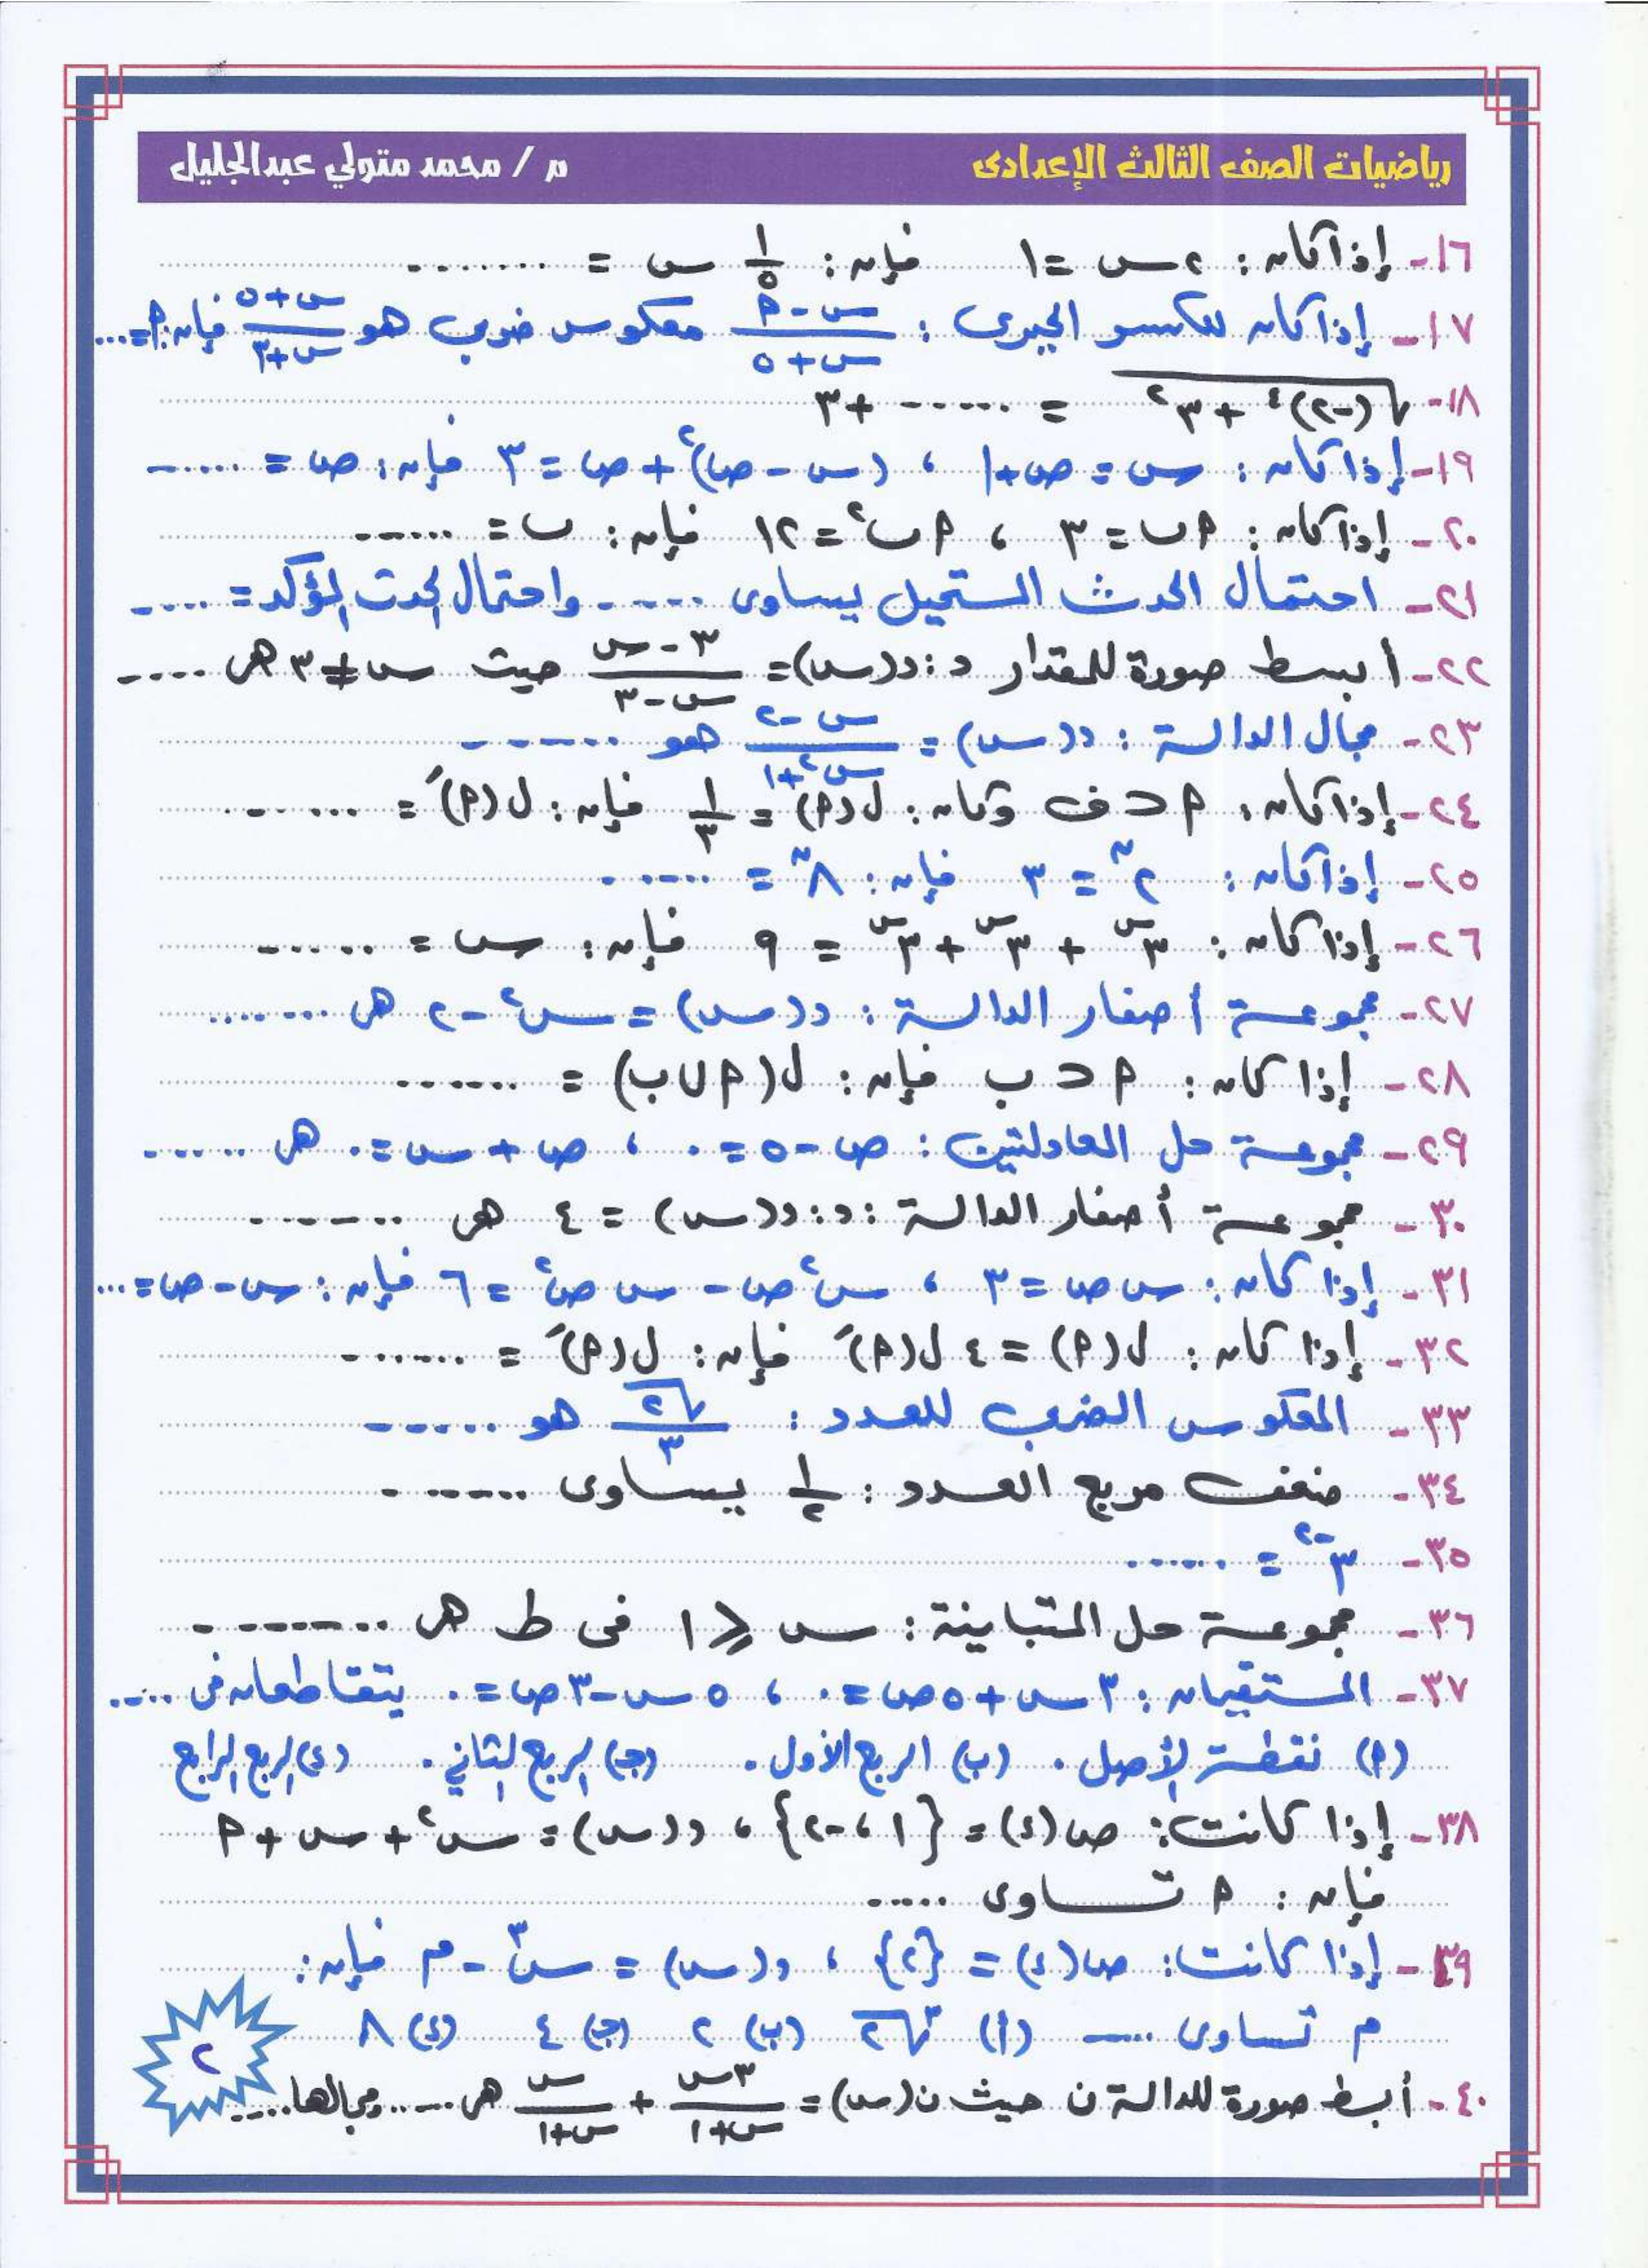 رياضيات الصف الثالث الإعدادى
م / محمد متولي عبدالجليل
١٦- إذا كان : ٢س = ١ فإن : ١/٥ س = ........
١٧- إذا كان للكسر الجبرى : (س - ٢)/(س + ٥) معكوس ضربى هو (س + ٥)/(س + ٣) فإن : ٢ = ...
١٨- √((-٢)^٤ + ٣^٢) = ...... + ٣
١٩- إذا كان : س = ص + ١ ، (س - ص)^٢ + ص = ٣ فإن : ص = ......
٢٠- إذا كان : ٢ب = ٣ ، ٢ب^٢ = ١٢ فإن : ب = ......
٢١- احتمال الحدث المستحيل يساوى ...... واحتمال الحدث المؤكد = ....
٢٢- أبسط صورة للمقدار د : د(س) = (٣ - س)/(س - ٣) حيث س ≠ ٣ هى ....
٢٣- مجال الدالة : د(س) = (س - ٢)/(س^٢ + ١) هو ......
٢٤- إذا كان : ٢ ⊂ ف وكان : ل(٢) = ١/٣ فإن : ل(٢َ) = ......
٢٥- إذا كان : ٢^ن = ٣ فإن : ٨^ن = ......
٢٦- إذا كان : ٣^س + ٣^س + ٣^س = ٩ فإن : س = ......
٢٧- مجموعة أصفار الدالة : د(س) = س^٢ - ٢ هى ........
٢٨- إذا كان : ٢ ⊂ ب فإن : ل(٢ ∪ ب) = ......
٢٩- مجموعة حل المعادلتين : ص - ٥ = ٠ ، ص + س = ٠ هى ......
٣٠- مجموعة أصفار الدالة : د : د(س) = ٤ هى ......
٣١- إذا كان : س ص = ٣ ، س^٢ ص - س ص^٢ = ٦ فإن : س - ص = ...
٣٢- إذا كان : ل(٢) = ٤ ل(٢َ) فإن : ل(٢َ) = ......
٣٣- المعكوس الضربى للعدد : √٢/٣ هو ......
٣٤- ضعف مربع العدد : ١/٢ يساوى ......
٣٥- ٣^-٢ = ......
٣٦- مجموعة حل المتباينة : س ⩾ ١ فى ط هى ........
٣٧- المستقيمان : ٣س + ٥ص = ٠ ، ٥س - ٣ص = ٠ يتقاطعان فى ....
(٢) نقطة الأصل . (ب) الربع الأول . (جـ) الربع الثاني . (د) الربع الرابع
٣٨- إذا كانت : ص(د) = {١ ، -٢} ، د(س) = س^٢ + س + ٢
فإن : ٢ تساوى .....
٣٩- إذا كانت : ص(د) = {٢} ، د(س) = س^٣ - م فإن :
م تساوى ..... (أ) ∛٢ (ب) ٢ (جـ) ٤ (د) ٨
٤٠- أبسط صورة للدالة ن حيث ن(س) = ٣س/(س + ١) + س/(س + ١) هى ..... ومجالها ....
٢